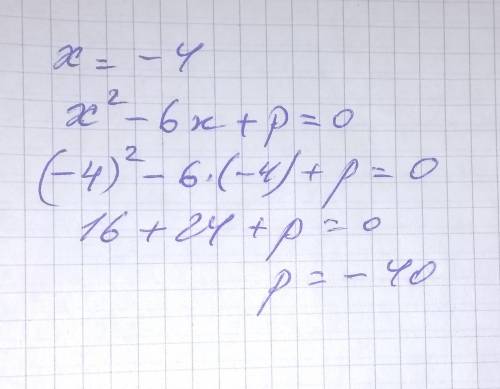 x = -4
x² - 6x + p = 0
(-4)² - 6·(-4) + p = 0
16 + 24 + p = 0
p = -40